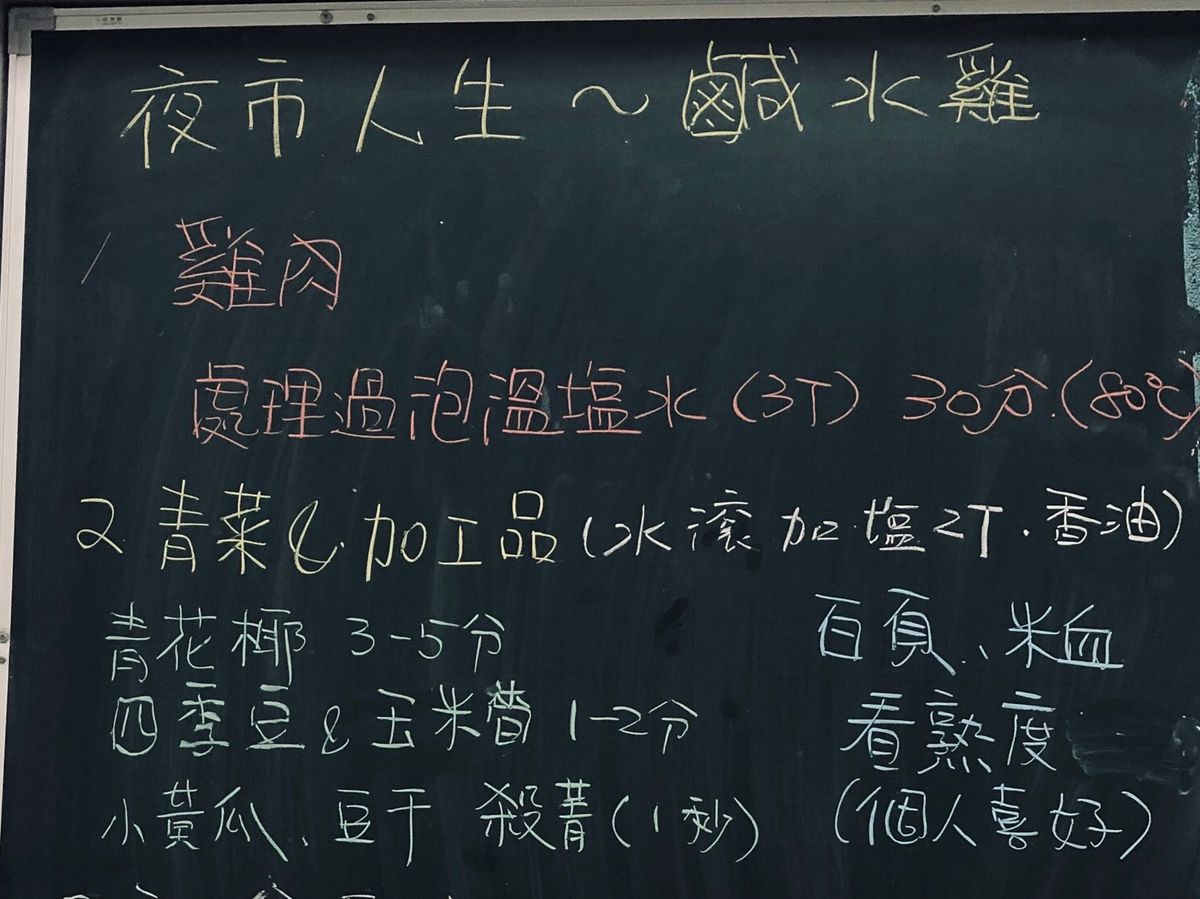 夜市人生～鹹水雞
1 雞肉
處理過泡溫塩水(3T) 30分.(80℃)
2 青菜& 加工品(水滾加塩2T.香油)
青花椰 3-5分
四季豆&玉米筍 1-2分
小黃瓜、豆干 殺菁(1秒)
百頁、米血
看熟度
(個人喜好)